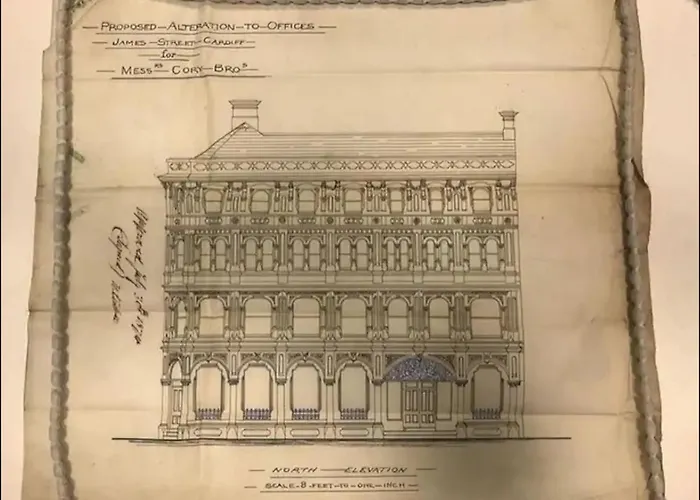 PROPOSED—ALTERATION—TO—OFFICES
JAMES—STREET—CARDIFF
for
MESSRS—CORY—BROS
Approved July
(Signed)
NORTH—ELEVATION
SCALE—8—FEET—TO—ONE—INCH